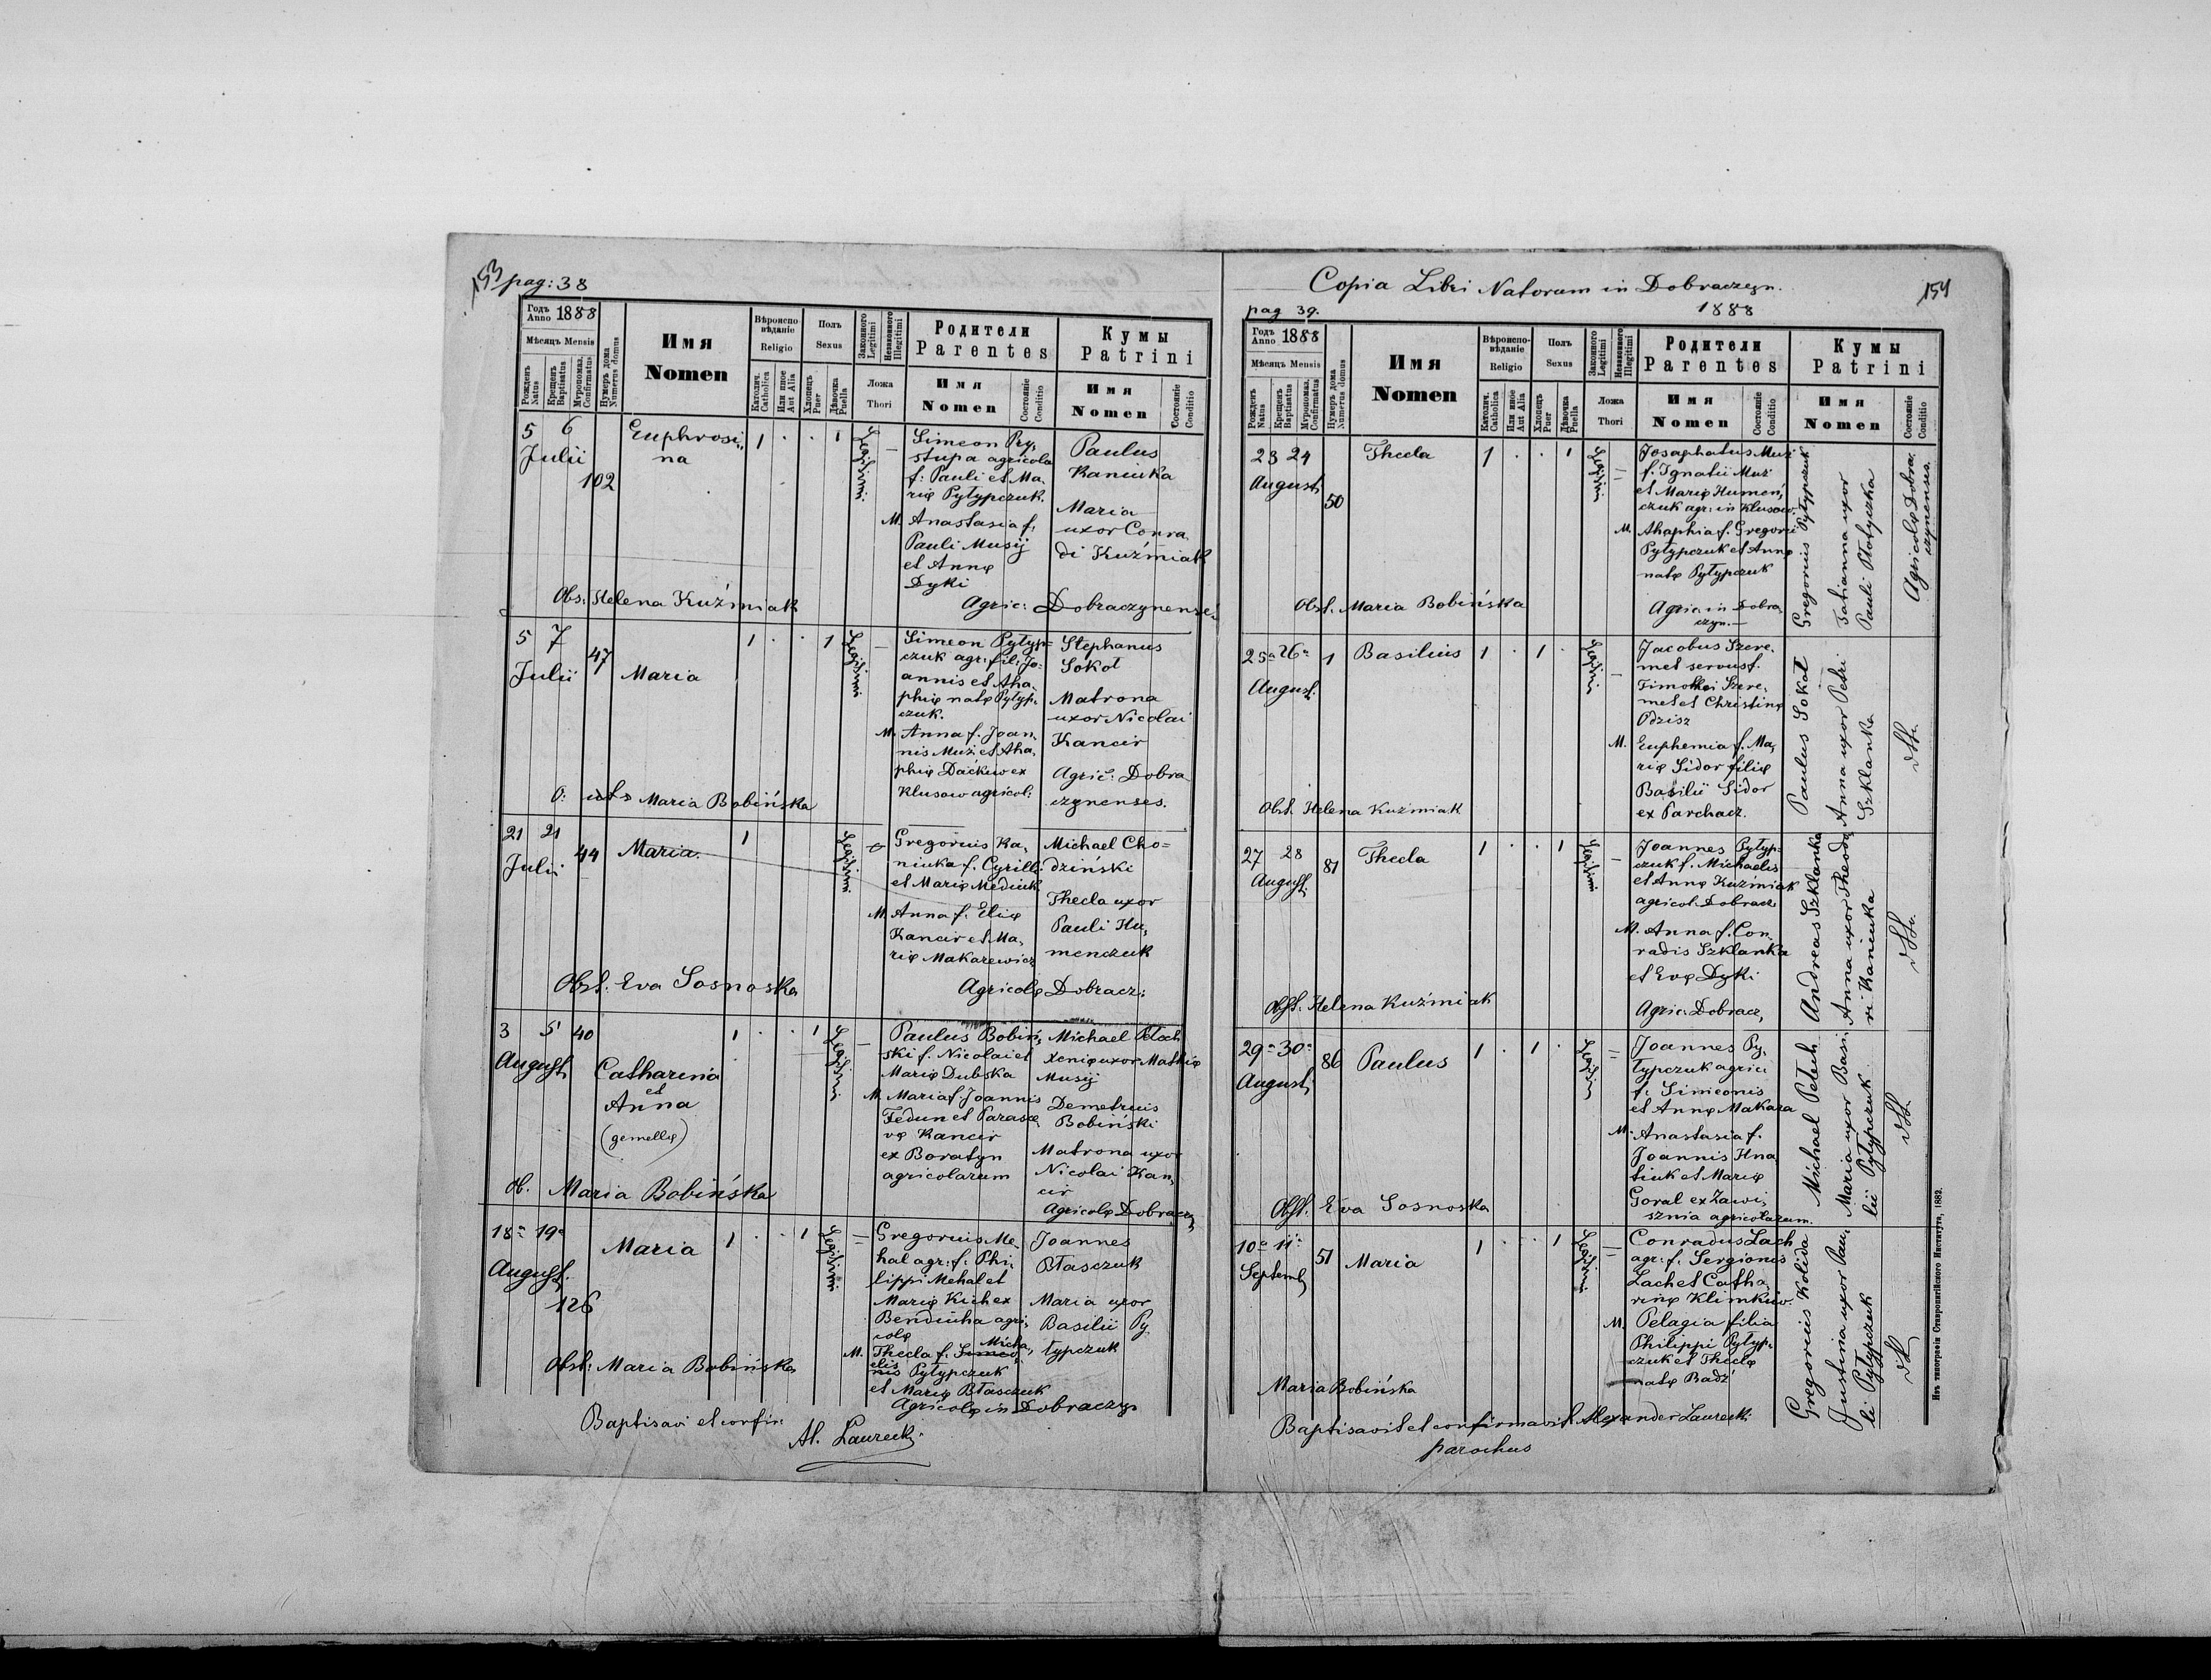 153 pag: 38
Годъ Anno 1888
Мѣсяцъ Mensis
Рожденъ Natus
Крещенъ Baptisatus
Мѵропомаз. Confirmatus
Нумеръ дома Numerus domus
Имя
Nomen
Вѣроиспо вѣданіе
Religio
Католич. Catholica
Или иное Aut Alia
Полъ
Sexus
Хлопецъ Puer
Дѣвочка Puella
Законного Legitimi
Незаконного Illegitimi
Ложа
Thori
Родители
Parentes
Имя
Nomen
Состояніе Conditio
Кумы
Patrini
Имя
Nomen
Состояніе Conditio
5 6
Julii
102
Euphrosi,,
na
1 . . 1
Legitimi
Simeon Pry,
stupa agricola
f: Pauli et Ma,
rię Pyłypczuk.
M. Anastasia f.
Pauli Musij
et Annę
Dyki
Paulus
Kaniuka
Maria
uxor Conra,
di Kuźmiak
Obs: Helena Kuźmiak
Agric: Dobraczynenses
5 7
Julii
47
Maria
1 . . 1
Legitimi
Simeon Pyłyp=
czuk agr: fil: Jo:
annis et Aha,
phię natę Pyłyp,
czuk.
M. Anna f. Joan,
nis Muż et Aha,
phię Daćkiw ex
Klusow agricol:
Stephanus
Sokoł
Matrona
uxor Nicolai
Kancir
Agric: Dobra
czynenses.
O: Maria Bobińska
21 21
Julii
44
Maria.
1
Legitimi
Gregorius Ka,
niuka f. Cyrilli
et Marię Mediuk
M. Anna f. Elię
Kancir et Ma,
rię Makarewicz
Michael Cho=
dziński
Thecla uxor
Pauli Hu,
menczuk
Obst. Eva Sosnoska
Agricolę Dobracz:
3 5 40
Augusti
Catharina
et
Anna
(gemellę)
1 . . 1
Legitimi
Paulus Bobiń,
ski f. Nicolai et
Marię Dubska
M. Maria f. Joannis
Fedun et Parasce
vę Kancir
ex Boratyn
agricolarum
Michael Petech
Xenię uxor Mathię
Musij
Demetrius
Bobiński
Matrona uxor
Nicolai Kan,
cir
Agricolę Dobracz,
ob. Maria Bobińska
18a 19a
August.
126
Maria
1 . . 1
Legitimi
Gregorius Me,
hal agr: f. Phi,
lippi Mehal et
Marię Kich ex
Bendiuha agri,
colę
M. Thecla f. Simeo, Micha,
nis elis Pyłypczuk
et Marię Błasczuk
Agricolę in Dobraczyn
Joannes
Błasczuk
Maria uxor
Basilii Py,
łypczuk
Obst: Maria Bobińska
Baptisavi et confir:
Al. Laurecki
Copia Libri Natorum in Dobraczyn.
1888
154
pag 39.
Годъ Anno 1888
Мѣсяцъ Mensis
Рожденъ Natus
Крещенъ Baptisatus
Мѵропомаз. Confirmatus
Нумеръ дома Numerus domus
Имя
Nomen
Вѣроиспо- вѣданіе
Religio
Католич. Catholica
Или иное Aut Alia
Полъ
Sexus
Хлопецъ Puer
Дѣвочка Puella
Законного Legitimi
Незаконного Illegitimi
Ложа
Thori
Родители
Parentes
Имя
Nomen
Состояніе Conditio
Кумы
Patrini
Имя
Nomen
Состояніе Conditio
23 24
Augusti
50
Thecla
1 . . 1
Legitimi
Josaphatus Muż
f. Ignatii Muż
et Marię Humen,
czuk agr: in Klusow
M. Ahaphia f. Gregorii
Pyłypczuk et Annę
natę Pyłypczuk
Agric. in Dobra,
czyn.
Gregorius Pyłypczuk
Tatianna uxor
Pauli Płotyczka
Agricolę Dobra,
czynenses.
Obst. Maria Bobińska
25a 26a
August.
1
Basilius
1 . 1 .
Legitimi
Jacobus Szere,
met servus f.
Timothei Szere,
met et Christinę
Odzisz
M. Euphemia f. Ma,
rię Sidor filię
Basilii Sidor
ex Parchacz.
Paulus Sokoł
Anna uxor Petri
Szklanka
dtto.
Obst. Helena Kuźmiak
27 28
Augusti
81
Thecla
1 . . 1
Legitimi
Joannes Pyłyp=
czuk f. Michaelis
et Annę Kuźmiak
agricol. Dobracz
M. Anna f. Con,
radis Szklanka
et Evę Dyki
Agric: Dobracz,
Andreas Szklanka
Anna uxor Theodo,
ri Kaniuka
dtto.
Obst. Helena Kuźmiak
29a 30a
Augusti
86
Paulus
1 . 1 .
Legitimi
Joannes Py,
łypczuk agric:
f. Simeonis
et Annę Makara
M. Anastasia f.
Joannis Hna,
tiuk et Marię
Goral ex Zawi,
sznia agricolarum.
Michael Petech
Maria uxor Basi,
lii Pyłypczuk
dtto.
Obst. Eva Sosnoska
10a 11a
Septemb,
51
Maria
1 . . 1
Legitimi
Conradus Lach
agr: f. Sergionis
Lach et Catha,
rinę Klimkiw.
M. Pelagia filia
Philippi Pyłyp,
czuk et Theclę
natę Badź
Gregorius Kolida
Justina uxor Pau,
li Pyłypczuk
dtto
Maria Bobińska
Baptisavit et confirmavit Alexander Laurecki
parochus
Изъ типографіи Ставропигійского Института, 1882.